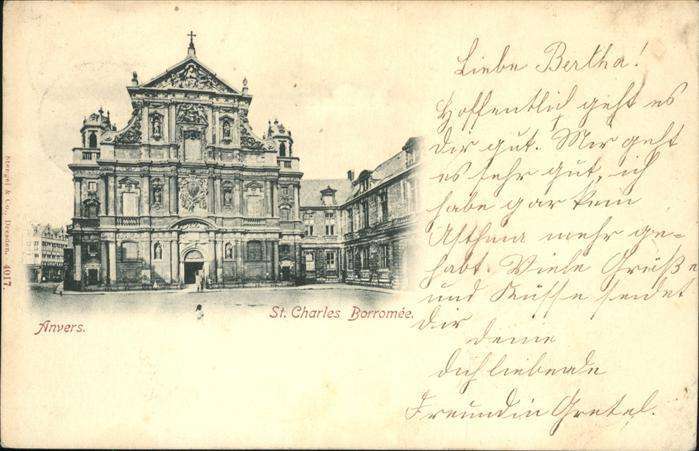 Liebe Bertha!
Hoffentlich geht es
dir gut. Mir geht
es sehr gut, ich
habe gar kein
Asthma mehr ge-
habt. Viele Grüße
und Küsse sendet
dir deine
dich liebende
Freundin Gretel.
St. Charles Borromée.
Anvers.
Stengel & Co., Dresden. 4017.